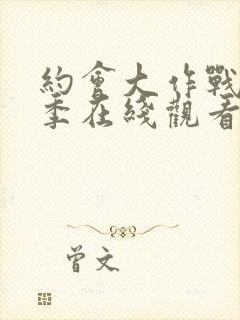 約會大作戰
季在綫觀看
曾文